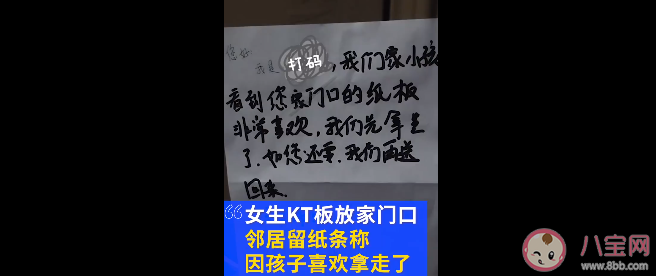 您好
我是 打码，我们家小孩
看到您家门口的纸板
非常喜欢，我们先拿走
了.如您还要.我们再送
回来.
女生KT板放家门口
邻居留纸条称
因孩子喜欢拿走了
八宝网
www.8bb.com